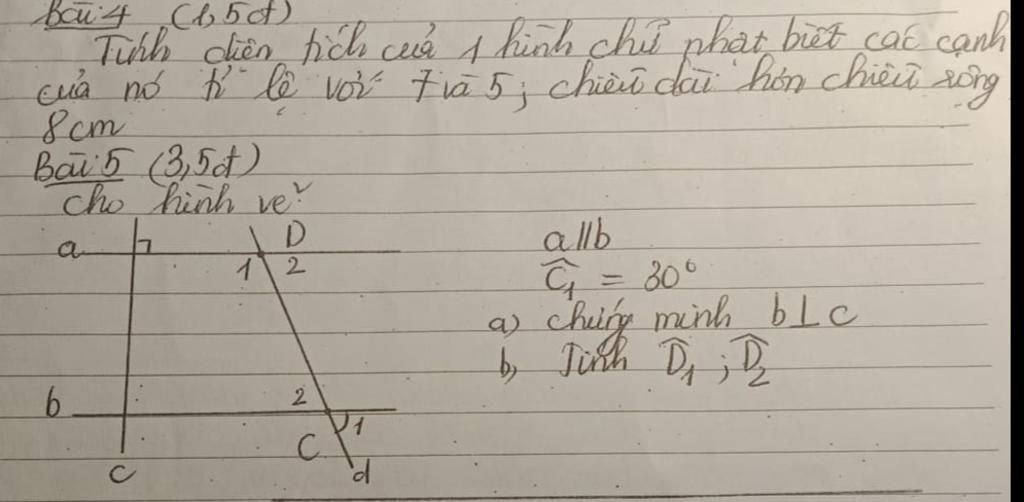 Bài 4 (1,5đ)
Tính diện tích của 1 hình chữ nhật biết các cạnh
của nó tỉ lệ với 7 và 5; chiều dài hơn chiều rộng
8cm
Bài 5 (3,5đ)
cho hình vẽ
a D
1 2
b 2
C 1
c d
a//b
Ĉ₁ = 30°
a) chứng minh b⊥c
b, Tính D̂₁ ; D̂₂